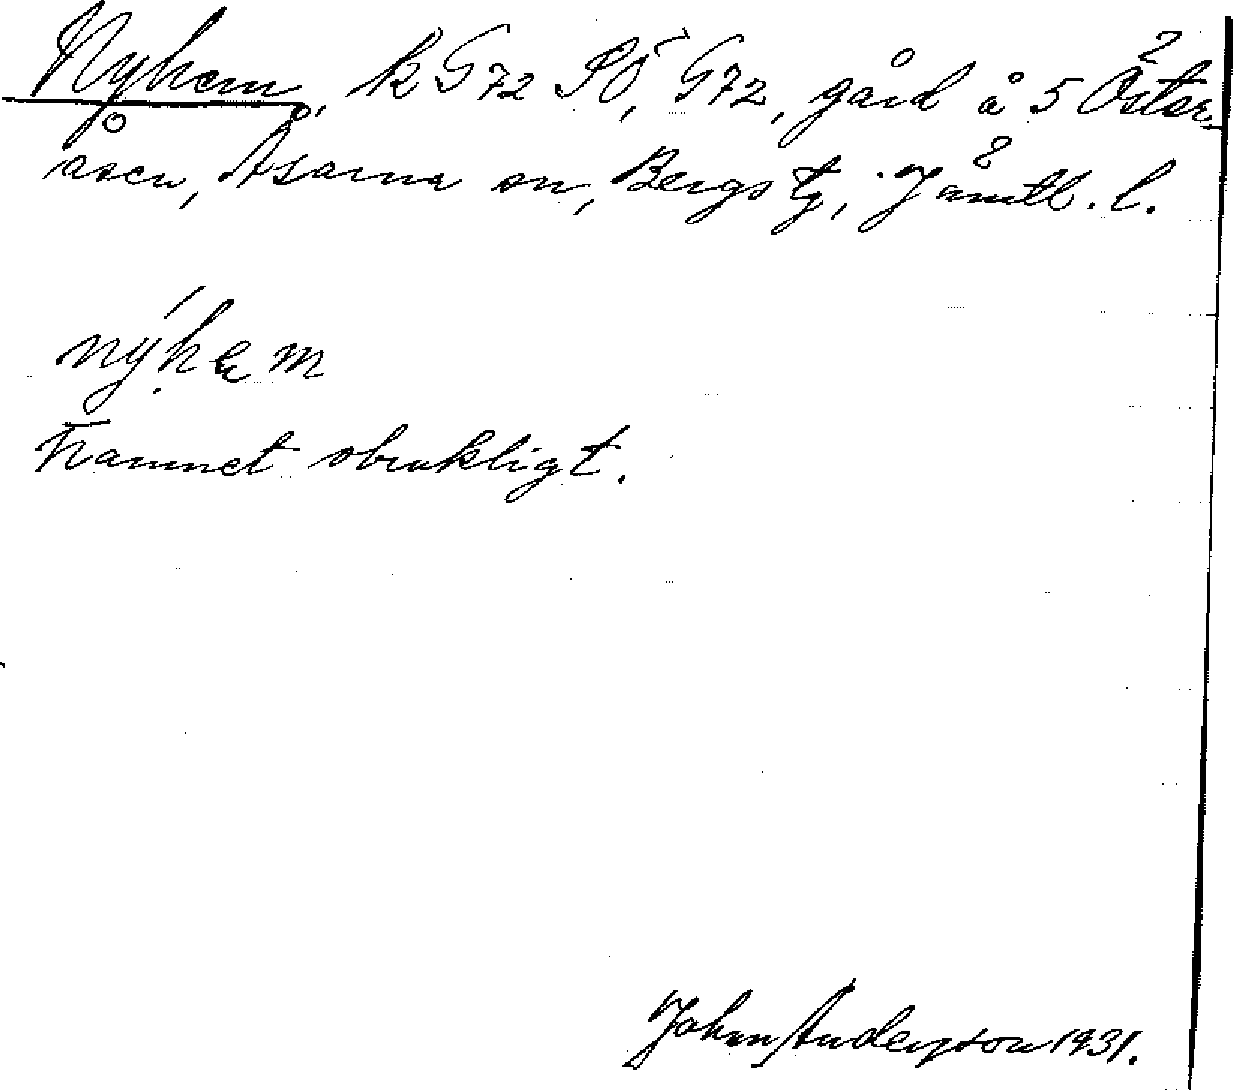 Nyhem, k G72 SÖ, G72, gård å 5 Öster-
åsen, Åsarna sn, Bergs tg, Jämtl. l.
nýhem
Namnet obrukligt.
Johan Anderson 1931.